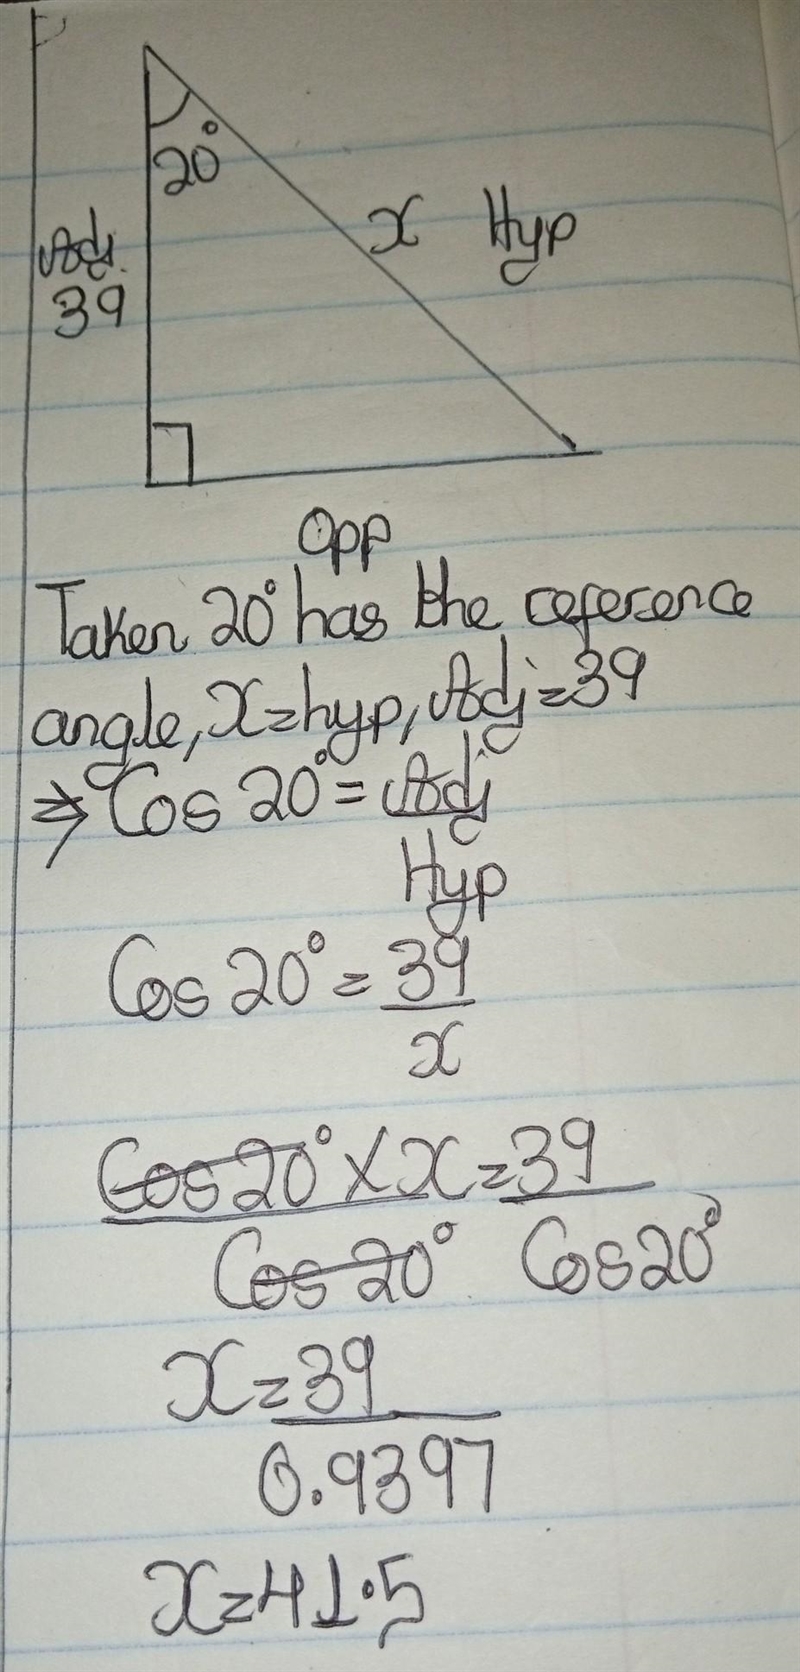 20°
x Hyp
Adj.
39
Opp
Taken 20° has the reference
angle, x=hyp, Adj=39
⇒ Cos 20° = Adj
Hyp
Cos 20° = 39
x
Cos 20° × x = 39
Cos 20° Cos 20°
x = 39
0.9397
x = 41.5